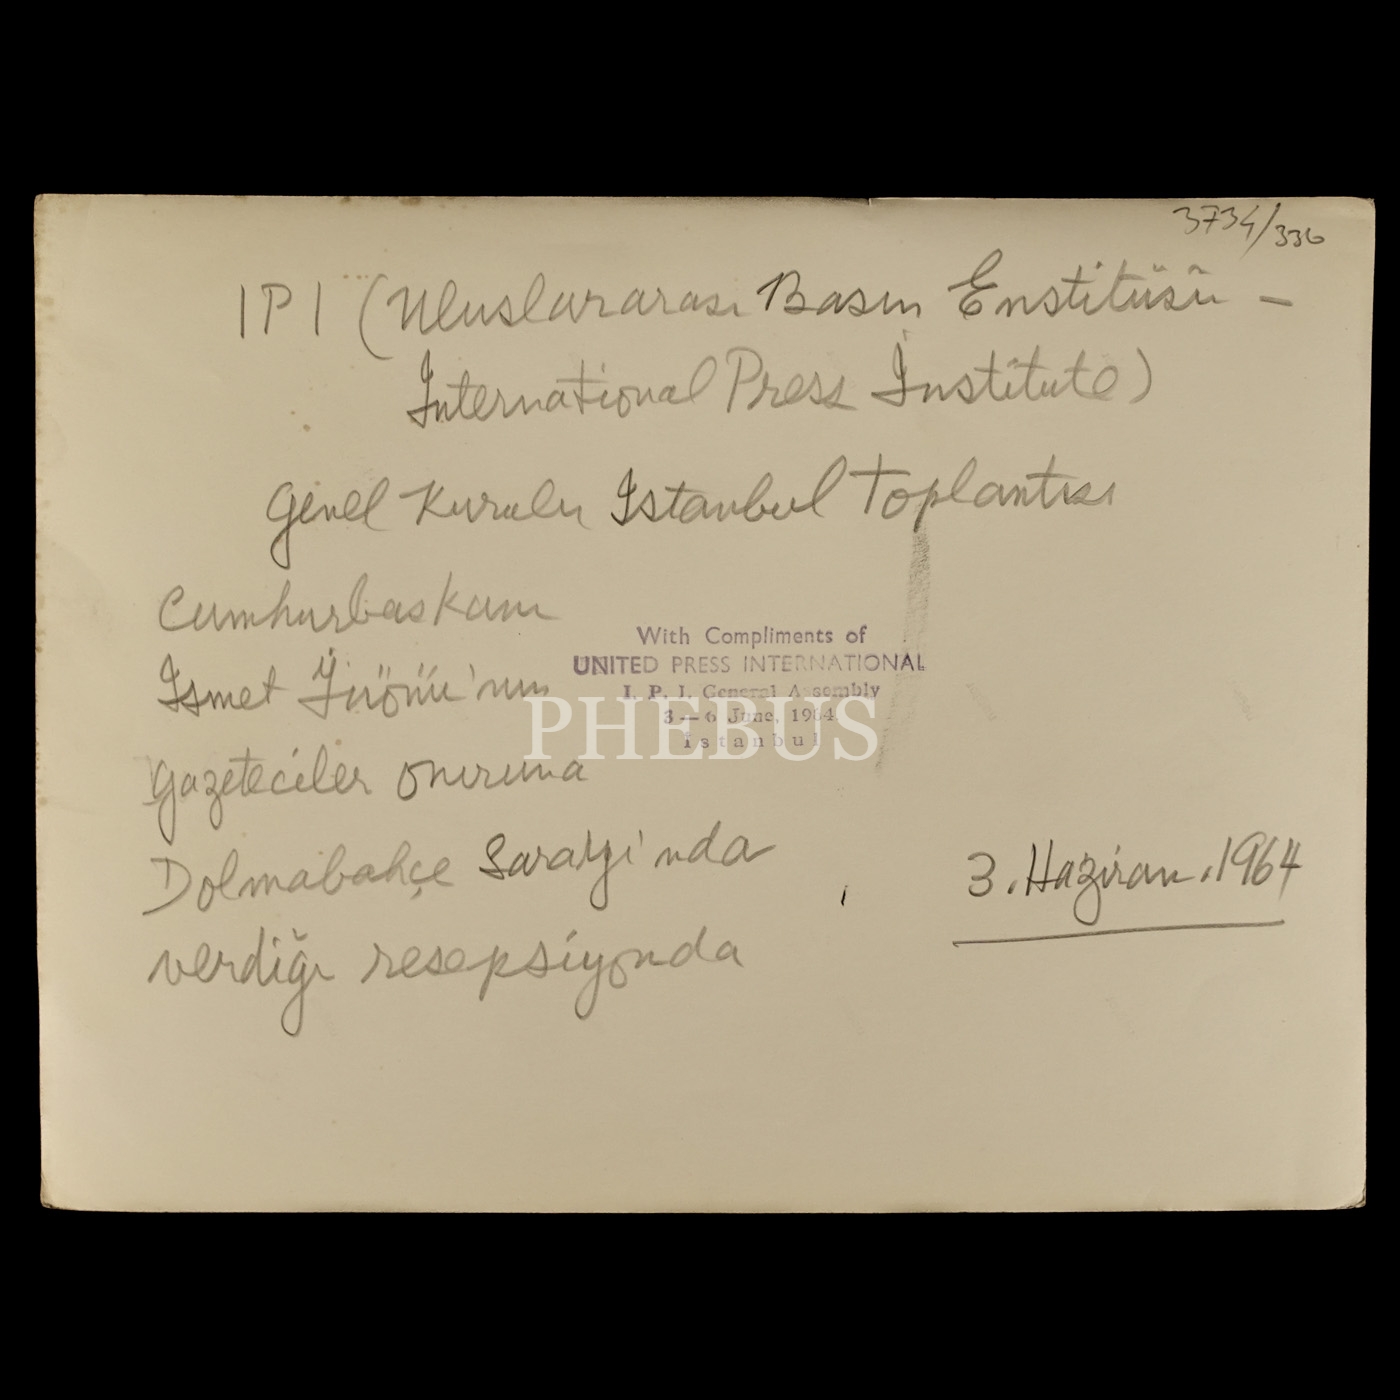 3734/336
IPI (Uluslararası Basın Enstitüsü -
International Press İnstitute)
Genel Kurulu İstanbul Toplantısı
Cumhurbaskanı
İsmet İnönü'nün
gazeteciler onuruna
Dolmabahçe Sarayı'nda
verdiği resepsiyonda
With Compliments of
UNITED PRESS INTERNATIONAL
I. P. I. General Assembly
3 — 6 June, 1964
İstanbul
PHEBUS
3.Haziran.1964